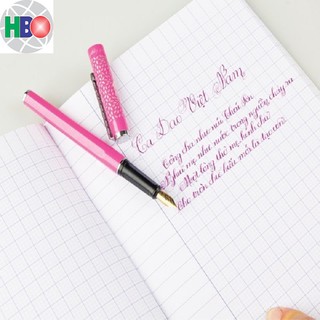 HBO
Ca Dao Việt Nam
Công cha như núi Thái Sơn
Nghĩa mẹ như nước trong nguồn chảy ra
Một lòng thờ mẹ kính cha
Cho tròn chữ hiếu mới là đạo con